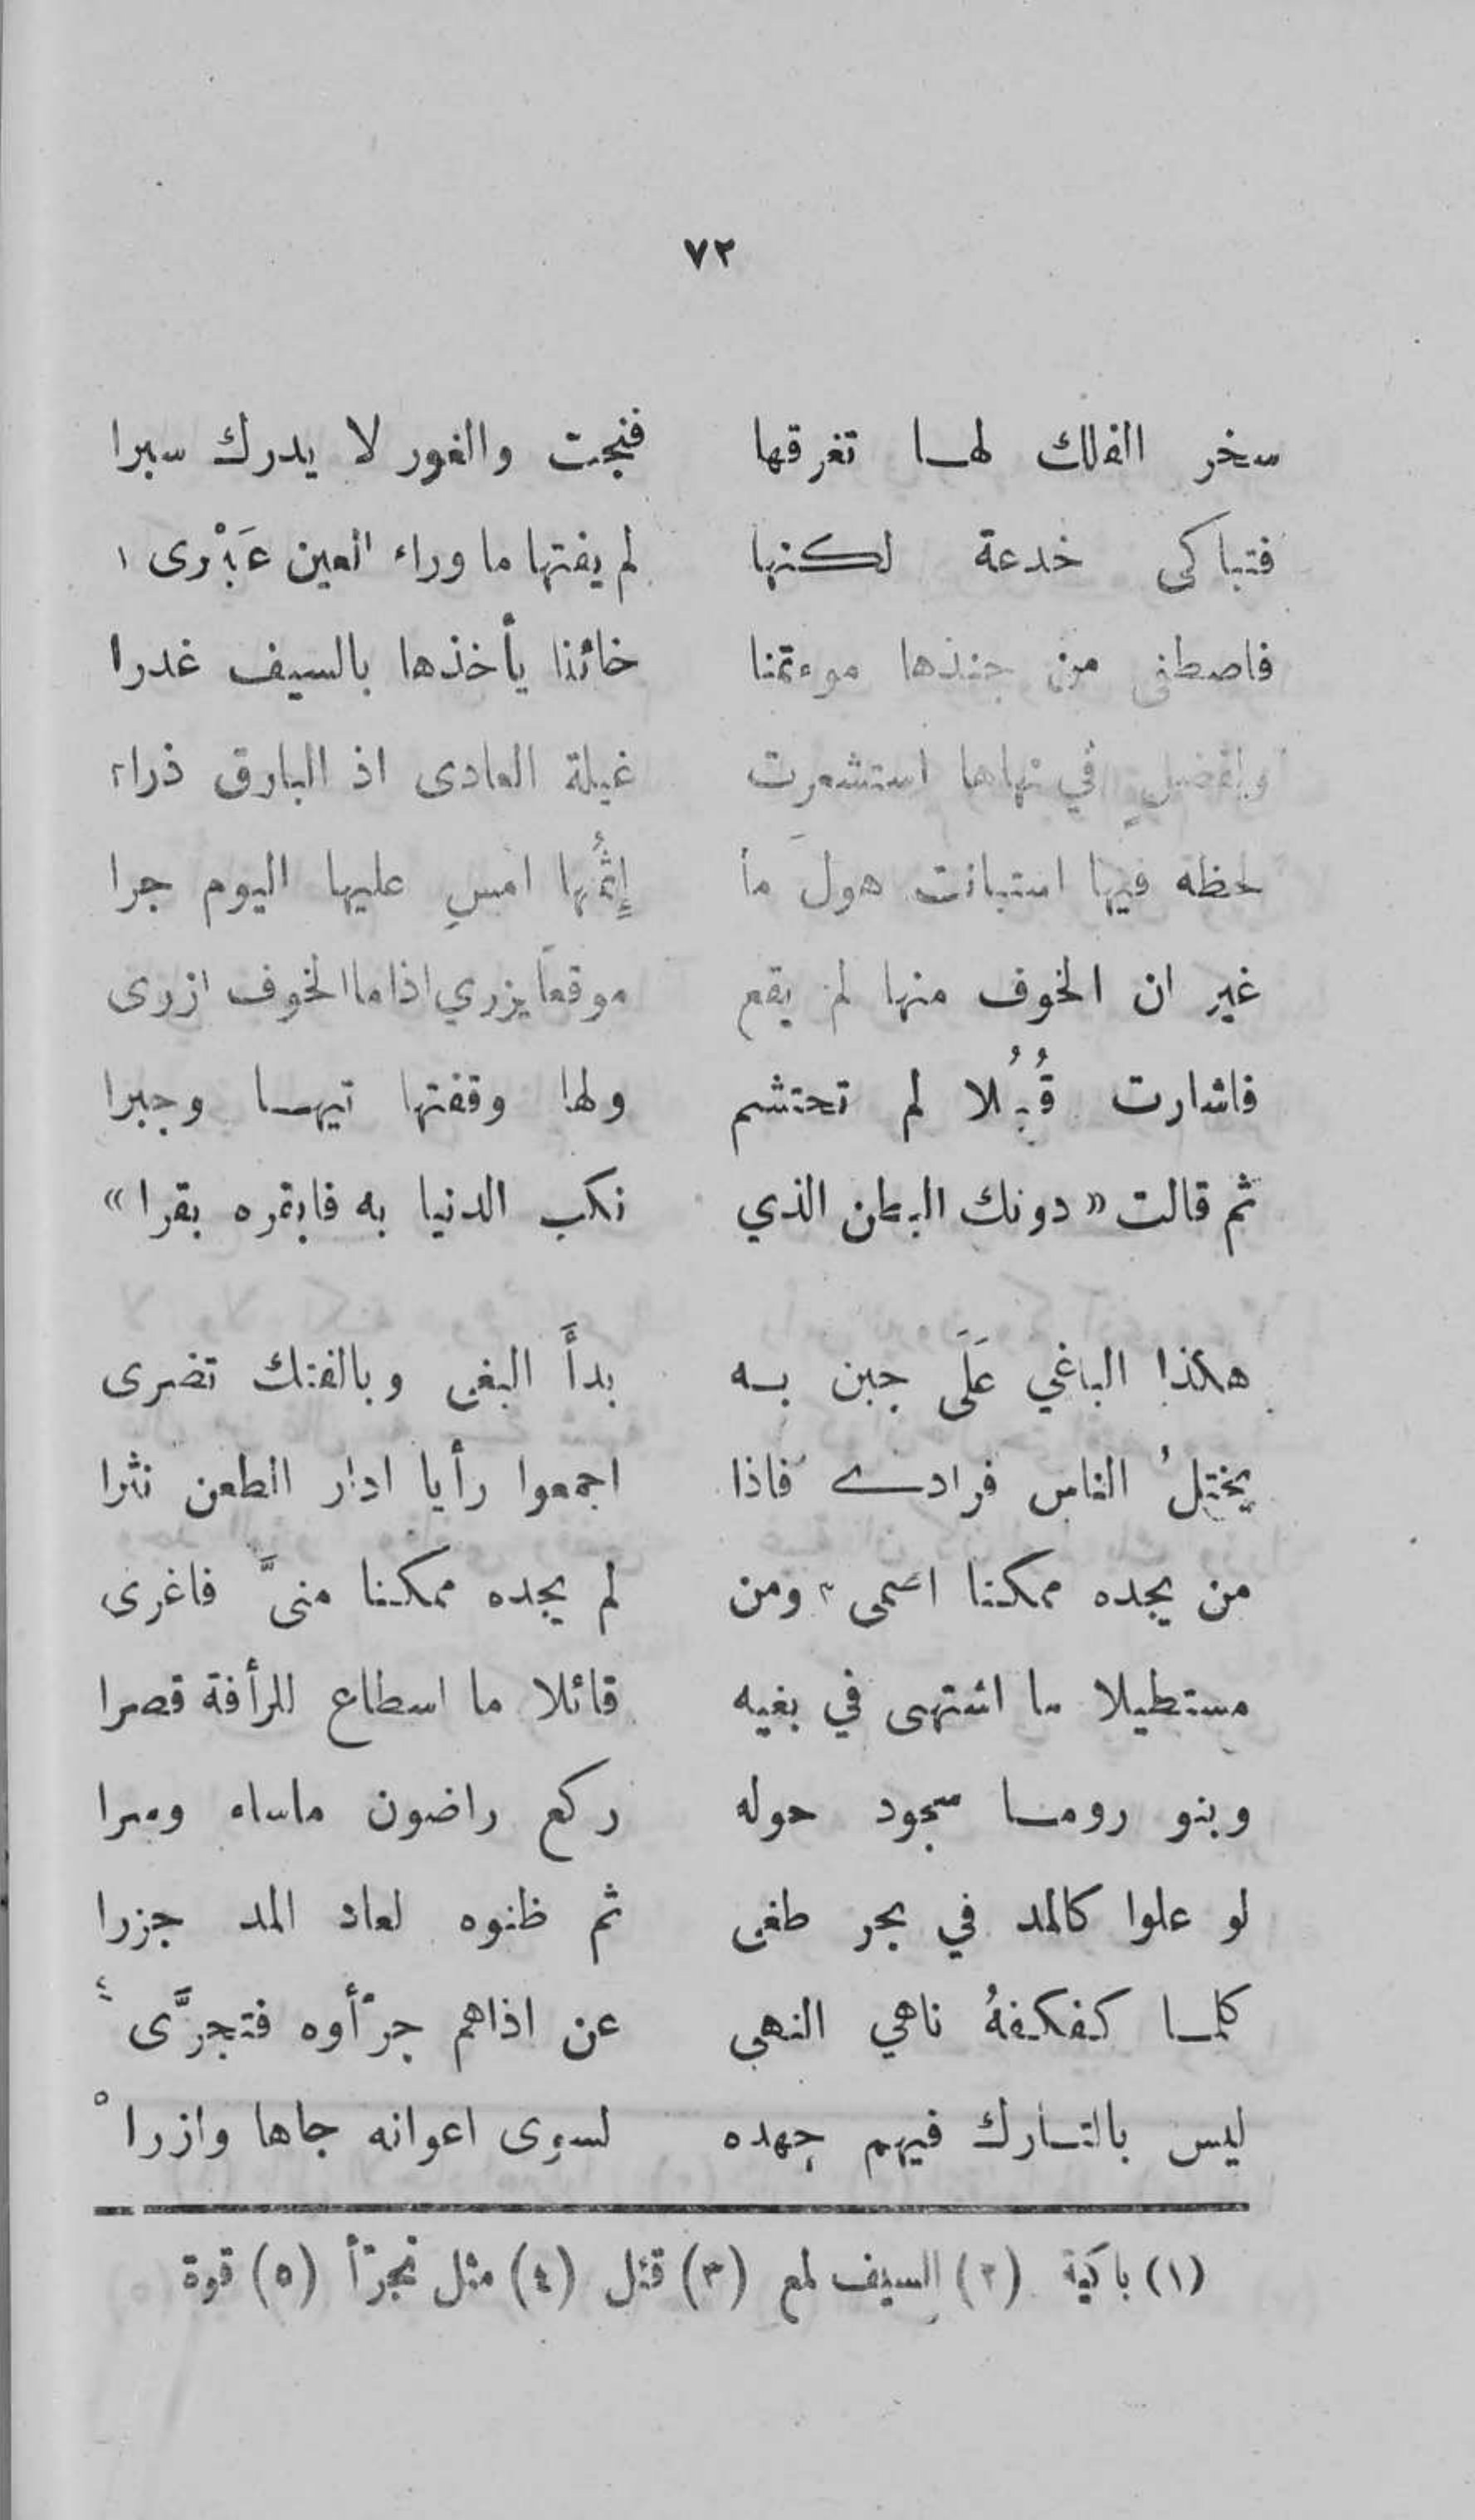 ٧٢
سخر الفلك لها تغرقها فنجت والغور لا يدرك سبرا
فتباكى خدعة لكنها لم يفتها ما وراء العين عَبْرى ١
فاصطفى من جندها موءتمنا خائنا يأخذها بالسيف غدرا
وبفضل في نهاها استشعرت غيلة العادى اذ البارق ذرا٢
لحظة فيها استبانت هولَ ما إِثمُها امسِ عليها اليوم جرا
غير ان الخوف منها لم يقع موقعاً يزري اذا ما الخوف ازرى
فاشارت قُبُلا لم تحتشم ولها وقفتها تيها وجبرا
ثم قالت «دونك البطن الذي نكب الدنيا به فابقره بقرا»
هكذا الباغي عَلَى جبن به بدأَ البغى وبالفتك تضرى
يختلُ الناس فرادى فاذا اجمعوا رأيا ادار الطعن نثرا
من يجده ممكنا اصمى٣ ومن لم يجده ممكنا منىَّ فاغرى
مستطيلا ما اشتهى في بغيه قائلا ما اسطاع للرأفة قصرا
وبنو روما سجود حوله ركع راضون ماساء وسرا
لو علوا كالمد في بحر طغى ثم ظنوه لعاد المد جزرا
كلما كفكفهُ ناهي النهى عن اذاهم جرّأوه فتجرَّى ٤
ليس بالتارك فيهم جهده لسوى اعوانه جاها وازرا ٥
(١) باكية (٢) السيف لمع (٣) قتل (٤) مثل تجرّأ (٥) قوة